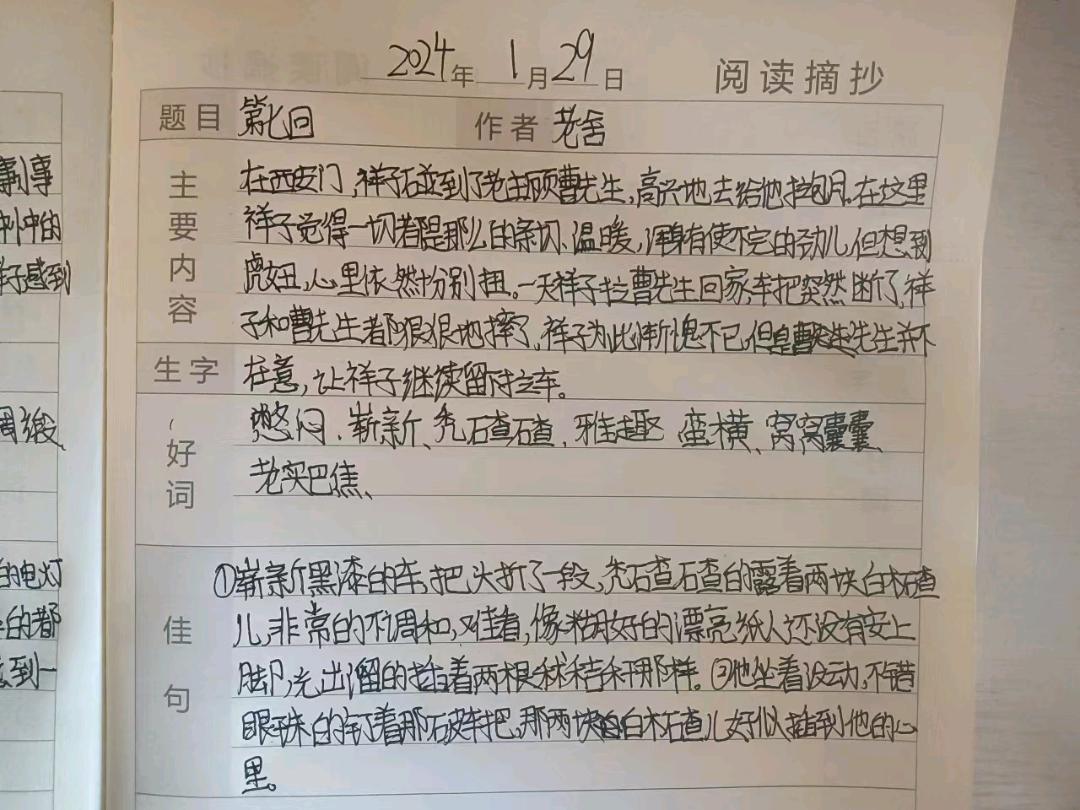 2024年 1月29日 阅读摘抄
题目 第七回 作者 老舍
事
中的
感到
调缎
的电灯
的都
到一
主要内容
在西安门，祥子碰到了老主顾曹先生，高兴地去给他拉包月。在这里
祥子觉得一切都是那么的亲切、温暖，浑身有使不完的劲儿，但想到
虎妞，心里依然十分别扭。一天祥子拉曹先生回家，车把突然断了，祥
子和曹先生都狠狠地摔了，祥子为此惭愧不已，但是曹先生并不
生字 在意，让祥子继续留下拉车。
好词
憋闷、崭新、秃碴碴、雅趣、蛮横、窝窝囊囊、
老实巴焦、
佳句
①崭新黑漆的车，把头折了一段，秃碴碴的露着两块白木碴
儿，非常的不调和，难看，像糊好的漂亮纸人还没有安上
脚，光出溜的插着两根秫秸秆那样。②他坐着没动，不错
眼珠的钉着那破车把，那两块白木碴儿好似插到他的心
里。